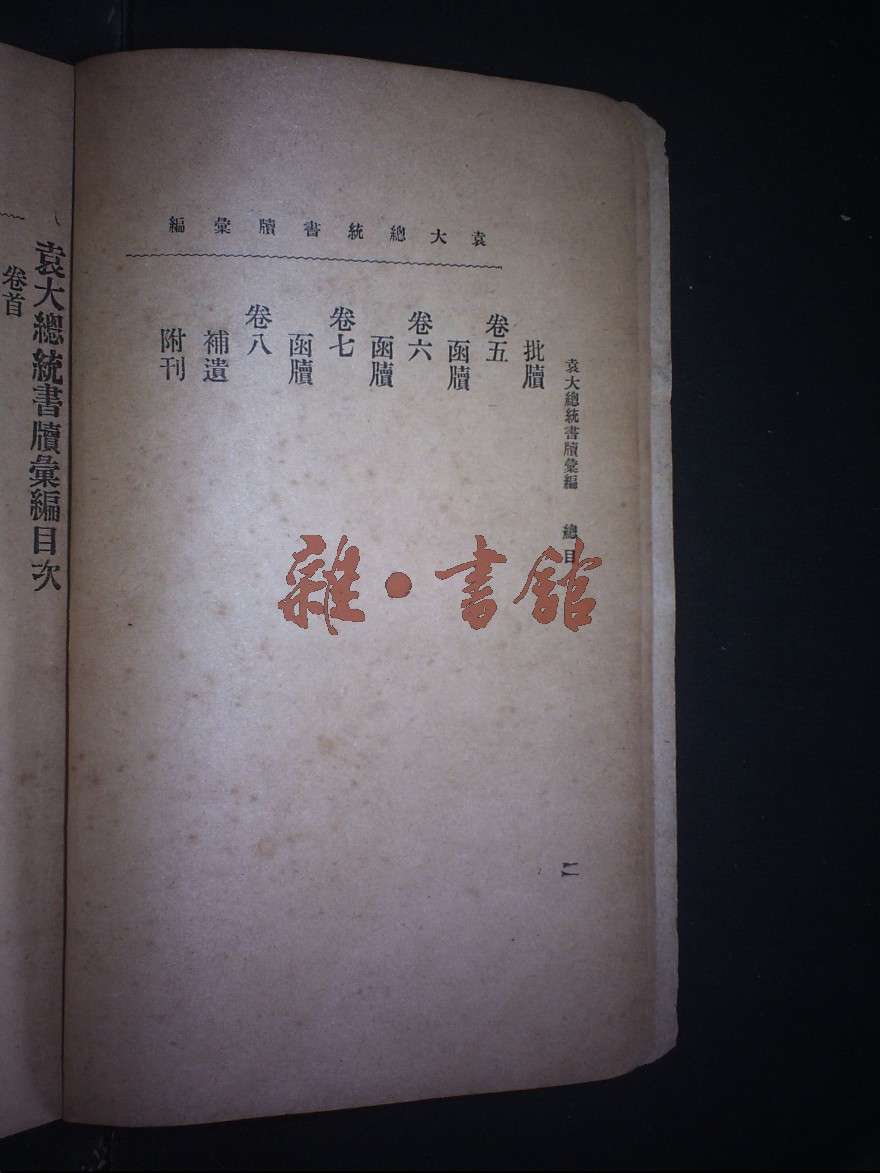 袁大總統書牘彙編
袁大總統書牘彙編 總目 二
批牘
卷五
函牘
卷六
函牘
卷七
函牘
卷八
補遺
附刊
袁大總統書牘彙編目次
卷首
雜·書館